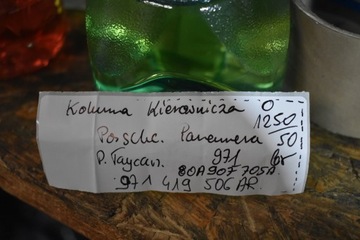 Kolumna Kierownicza
1250/50
Porsche. Panamera
P. Taycan. 971
80A907705A
971 419 506 AR.